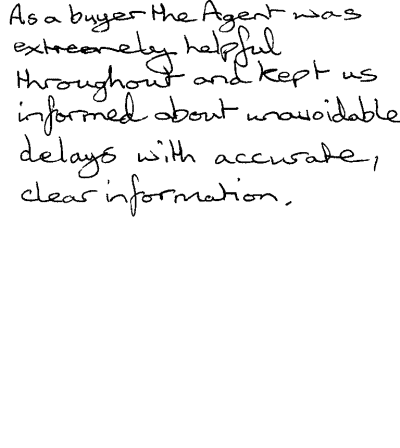 As a buyer the Agent was
extremely helpful
throughout and kept us
informed about unavoidable
delays with accurate,
clear information.